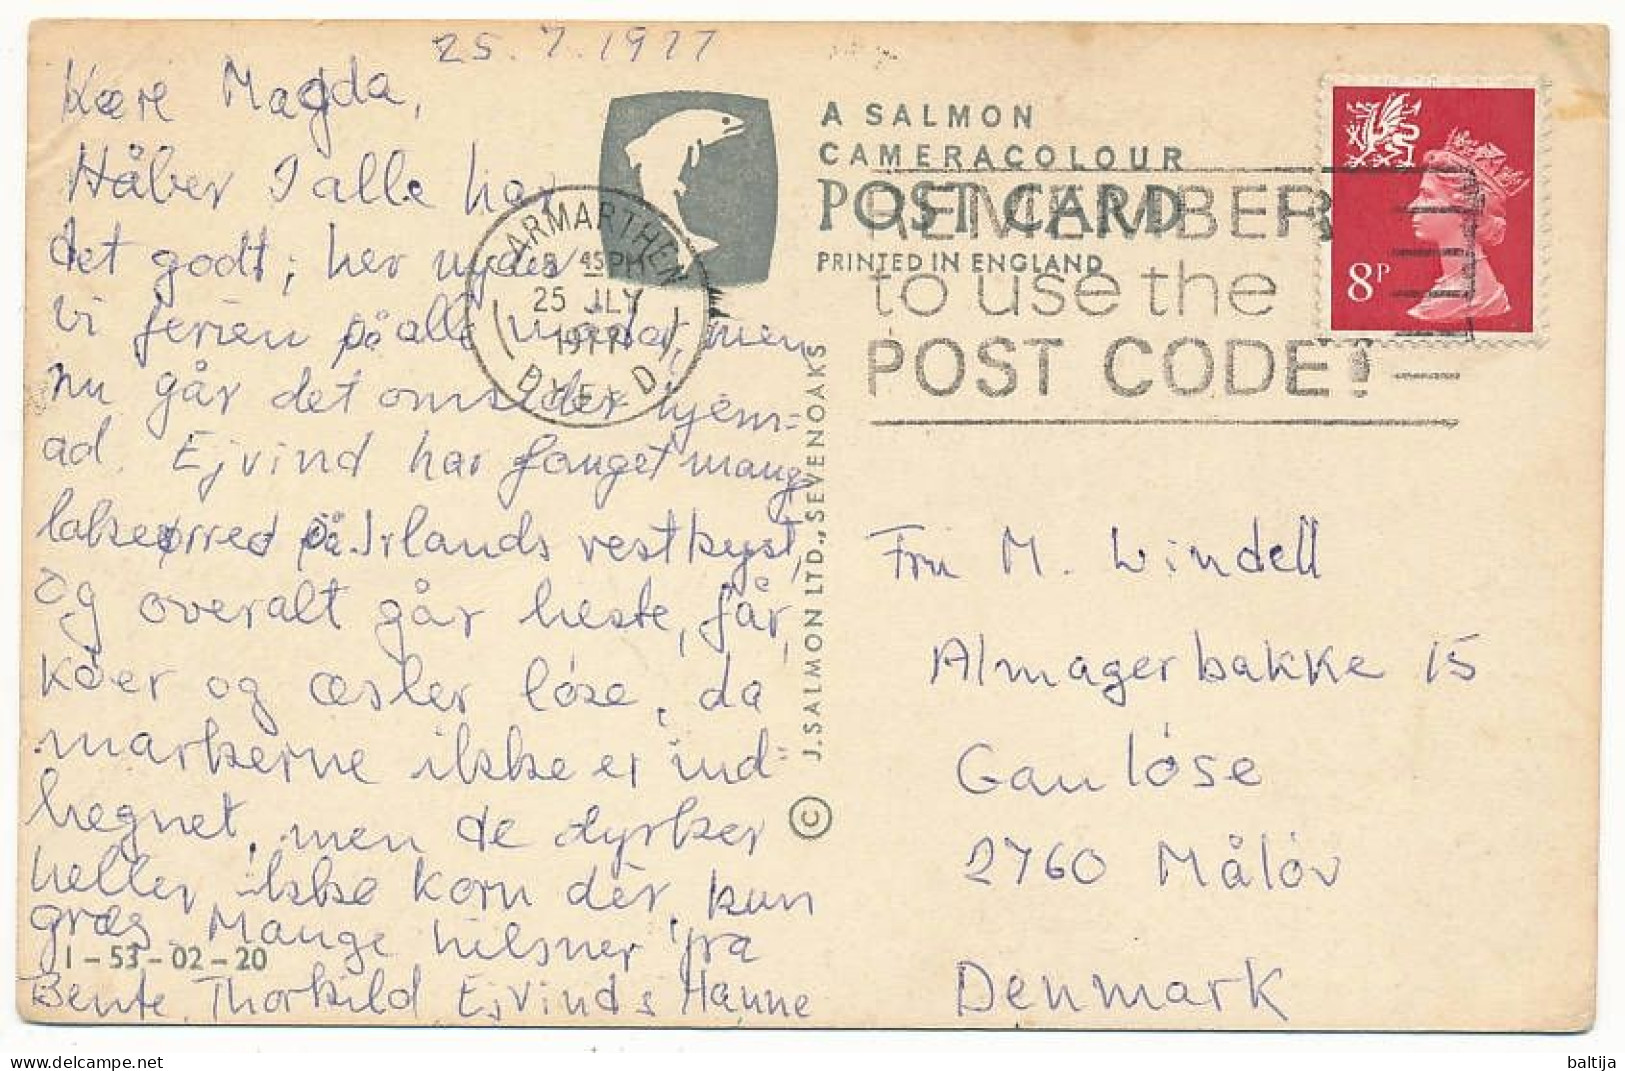 25.7.1977
Kære Magda,
Håber I alle har
det godt; her nyder
vi ferien på alle måder, men
nu går det omsider hjem-
ad. Ejvind har fanget mang
lakseørred på Irlands vestkyst,
og overalt går heste, får,
køer og æsler løse, da
markerne ikke er ind-
hegnet, men de dyrker
heller ikke korn dér, kun
græs. Mange hilsner fra
Bente, Thorkild Ejvind & Hanne
1-53-02-20
A SALMON
CAMERACOLOUR
POST CARD
PRINTED IN ENGLAND
© J. SALMON LTD., SEVENOAKS
CARMARTHEN
45 PM
25 JLY
1977
DYFED
REMEMBER
to use the
POST CODE!
8P
Fru M. Windell
Almagerbakke 15
Ganløse
2760 Måløv
Denmark
baltija